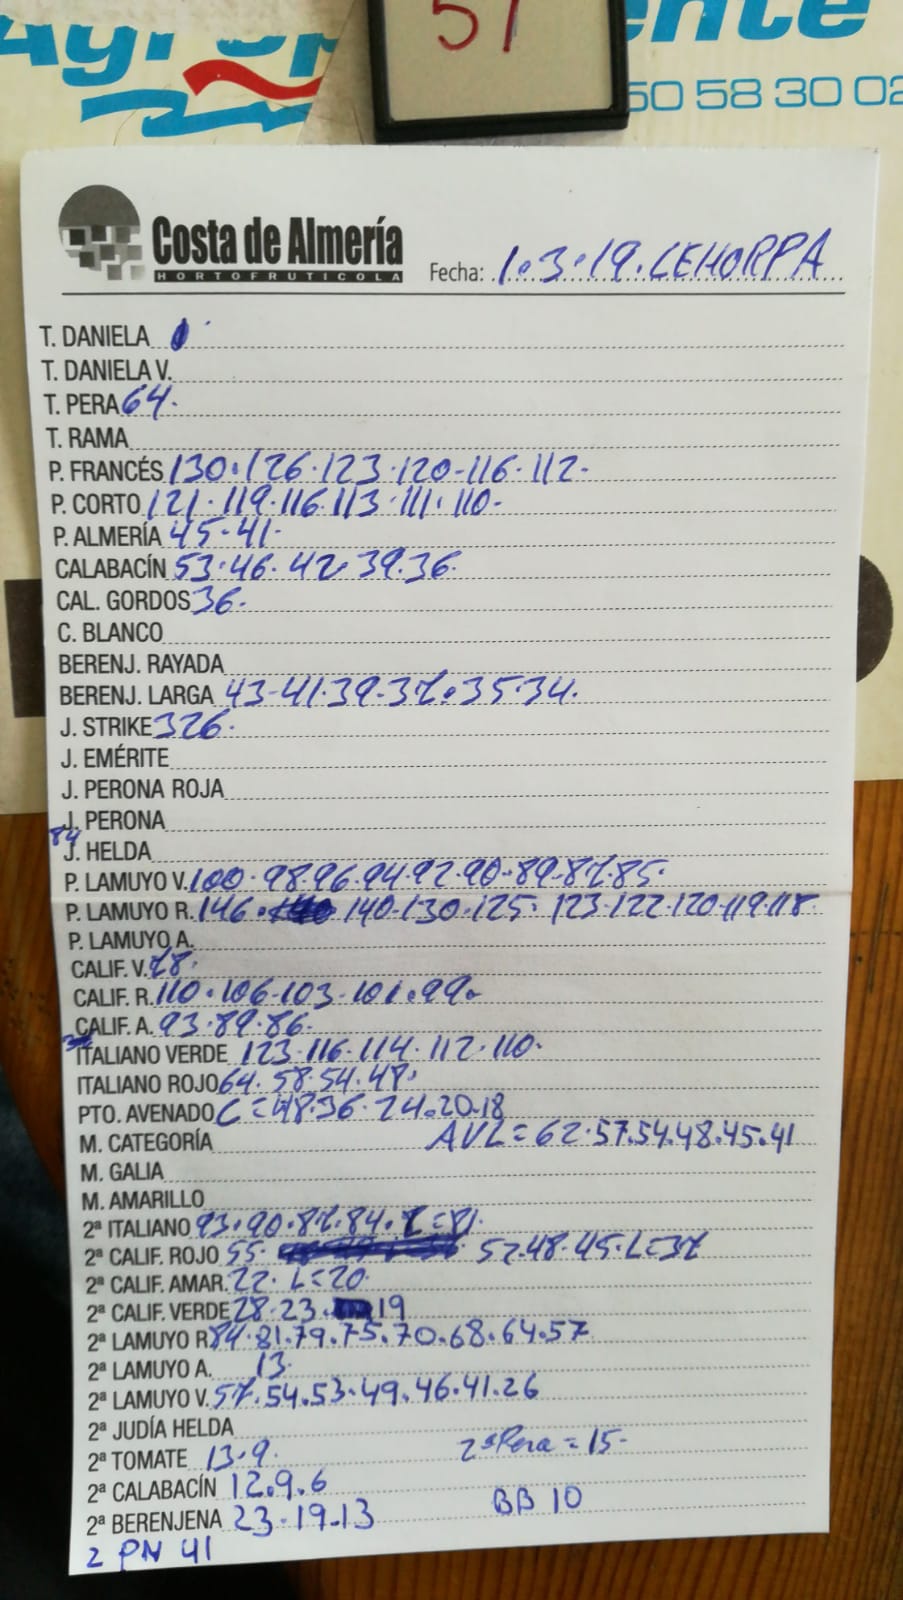 51
50 58 30 02
Costa de Almería
HORTOFRUTICOLA
Fecha: 1.3.19.LEHORPA
T. DANIELA
T. DANIELA V.
T. PERA 64.
T. RAMA
P. FRANCÉS 130.126.123.120-116.112-
P. CORTO 121.119.116.113.111.110-
P. ALMERÍA 45-41-
CALABACÍN 53.46.42.39.36.
CAL. GORDOS 36.
C. BLANCO
BERENJ. RAYADA
BERENJ. LARGA 43-41.39-37.35.34.
J. STRIKE 326.
J. EMÉRITE
J. PERONA ROJA
J. PERONA
84
J. HELDA
P. LAMUYO V. 100.98.96.94.92.90.89.87.85.
P. LAMUYO R. 146. 140.130.125. 123.122.120.119.118
P. LAMUYO A.
CALIF. V. 78.
CALIF. R. 110.106-103-101.99.
CALIF. A. 93.89.86.
ITALIANO VERDE 123.116.114.112.110.
ITALIANO ROJO 64.58.54.48.
PTO. AVENADO C=48.36.24.20.18
M. CATEGORÍA AVL=62.57.54.48.45.41
M. GALIA
M. AMARILLO
2ª ITALIANO 93.90.87.84. L=81.
2ª CALIF. ROJO 55. 52.48.45.L=37
2ª CALIF. AMAR. 22. L=20.
2ª CALIF. VERDE 28.23. 19
2ª LAMUYO R 84.81.79.75.70.68.64.57
2ª LAMUYO A. 13.
2ª LAMUYO V. 57.54.53.49.46.41.26
2ª JUDÍA HELDA
2ª TOMATE 13.9. 2ª Pera=15-
2ª CALABACÍN 12.9.6
2ª BERENJENA 23.19.13 BB 10
2 PN 41